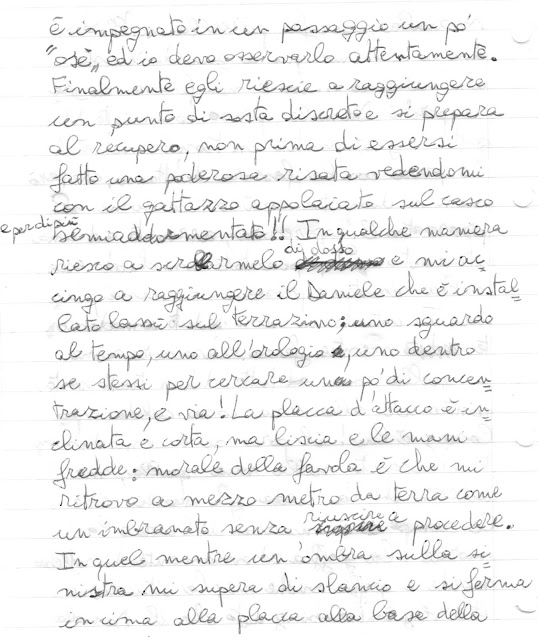 è impegnato in un passaggio un pò
"osè", ed io devo osservarlo attentamente.
Finalmente egli riescie a raggiungere
un punto di sosta discreto e si prepara
al recupero, non prima di essersi
fatto una poderosa risata vedendomi
con il gattazzo appolaiato sul casco
e per di più
semiaddormentato!! In qualche maniera
di dosso
riesco a scrollarmelo e mi ac=
cingo a raggiungere il Daniele che è instal=
lato lassù sul terrazino; uno sguardo
al tempo, uno all'orologio, uno dentro
se stessi per cercare un pò di concen=
trazione, e via! La placca d'attacco è in=
clinata e corta, ma liscia e le mani
fredde: morale della favola è che mi
ritrovo a mezzo metro da terra come
riuscire a
un imbranato senza procedere.
In quel mentre un'ombra sulla si=
nistra mi supera di slancio e si ferma
in cima alla placca alla base della